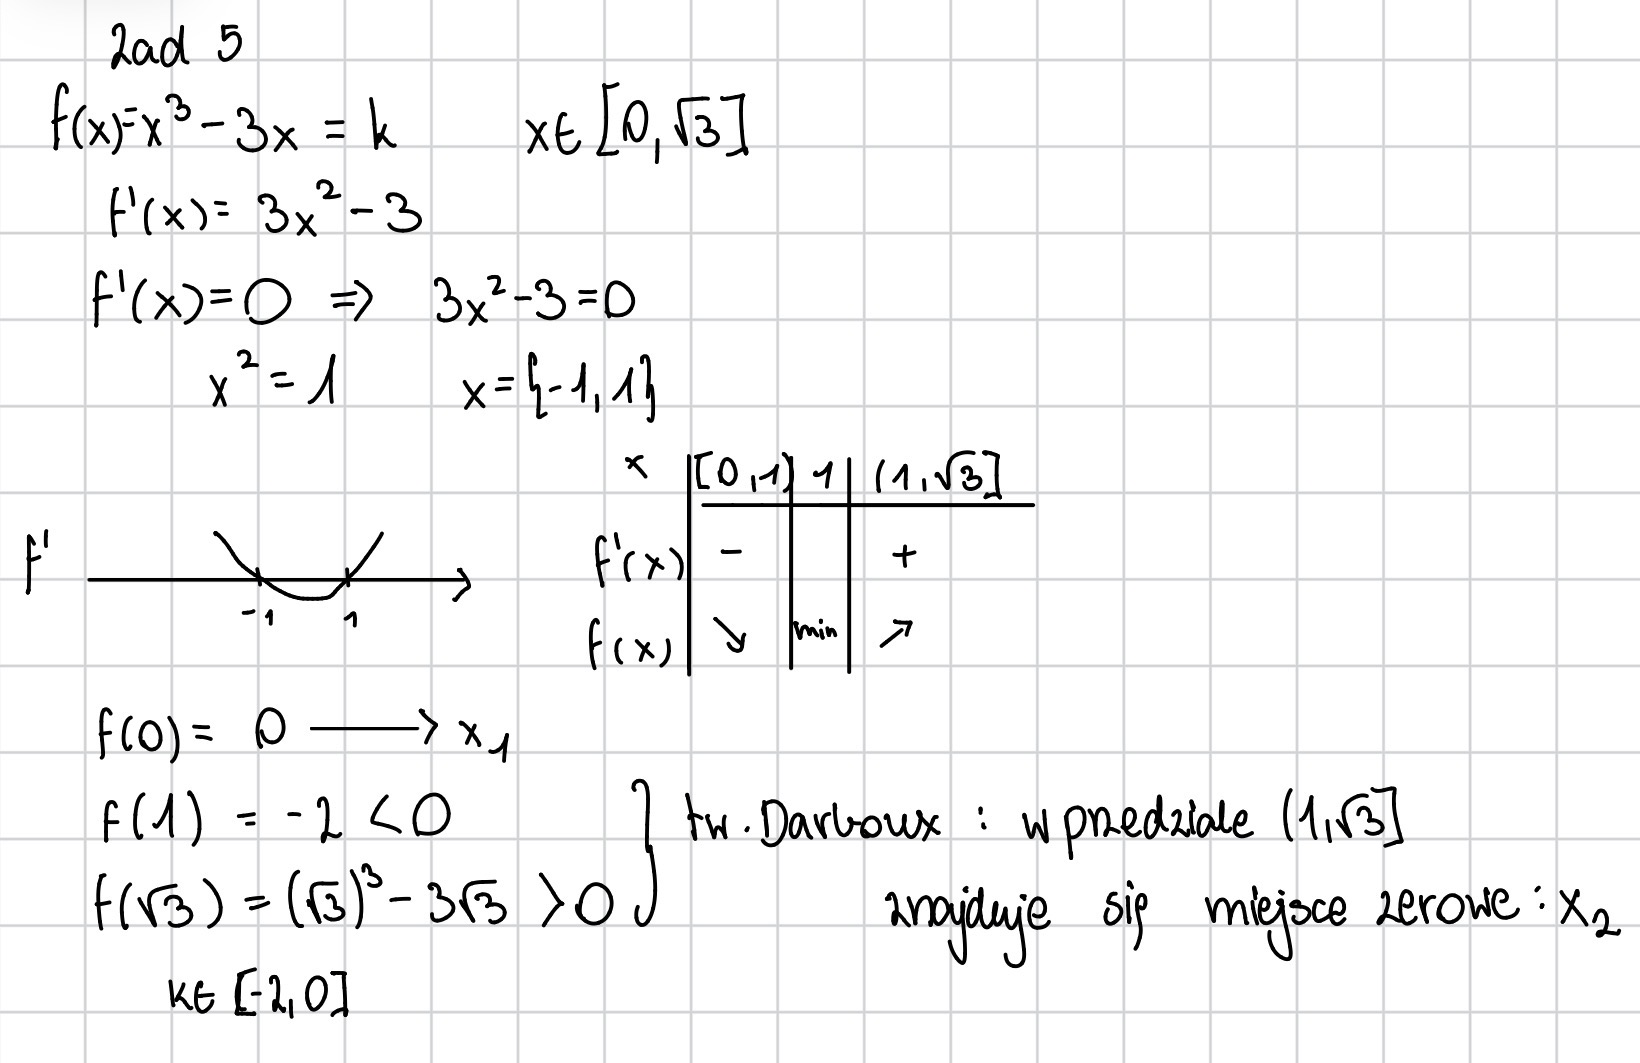 Zad 5
f(x)=x³-3x = k x∈[0,√3]
f'(x)= 3x²-3
f'(x)=0 ⇒ 3x²-3=0
x²=1 x={-1,1}
x [0,1) 1 (1,√3]
f' f'(x) - +
-1 1
f(x) ↘ min ↗
f(0)= 0 ⟶ x₁
f(1) = -2 <0 } tw. Darboux : w przedziale (1,√3]
f(√3) = (√3)³- 3√3 >0 znajduje się miejsce zerowe : x₂
k∈ [-2,0]